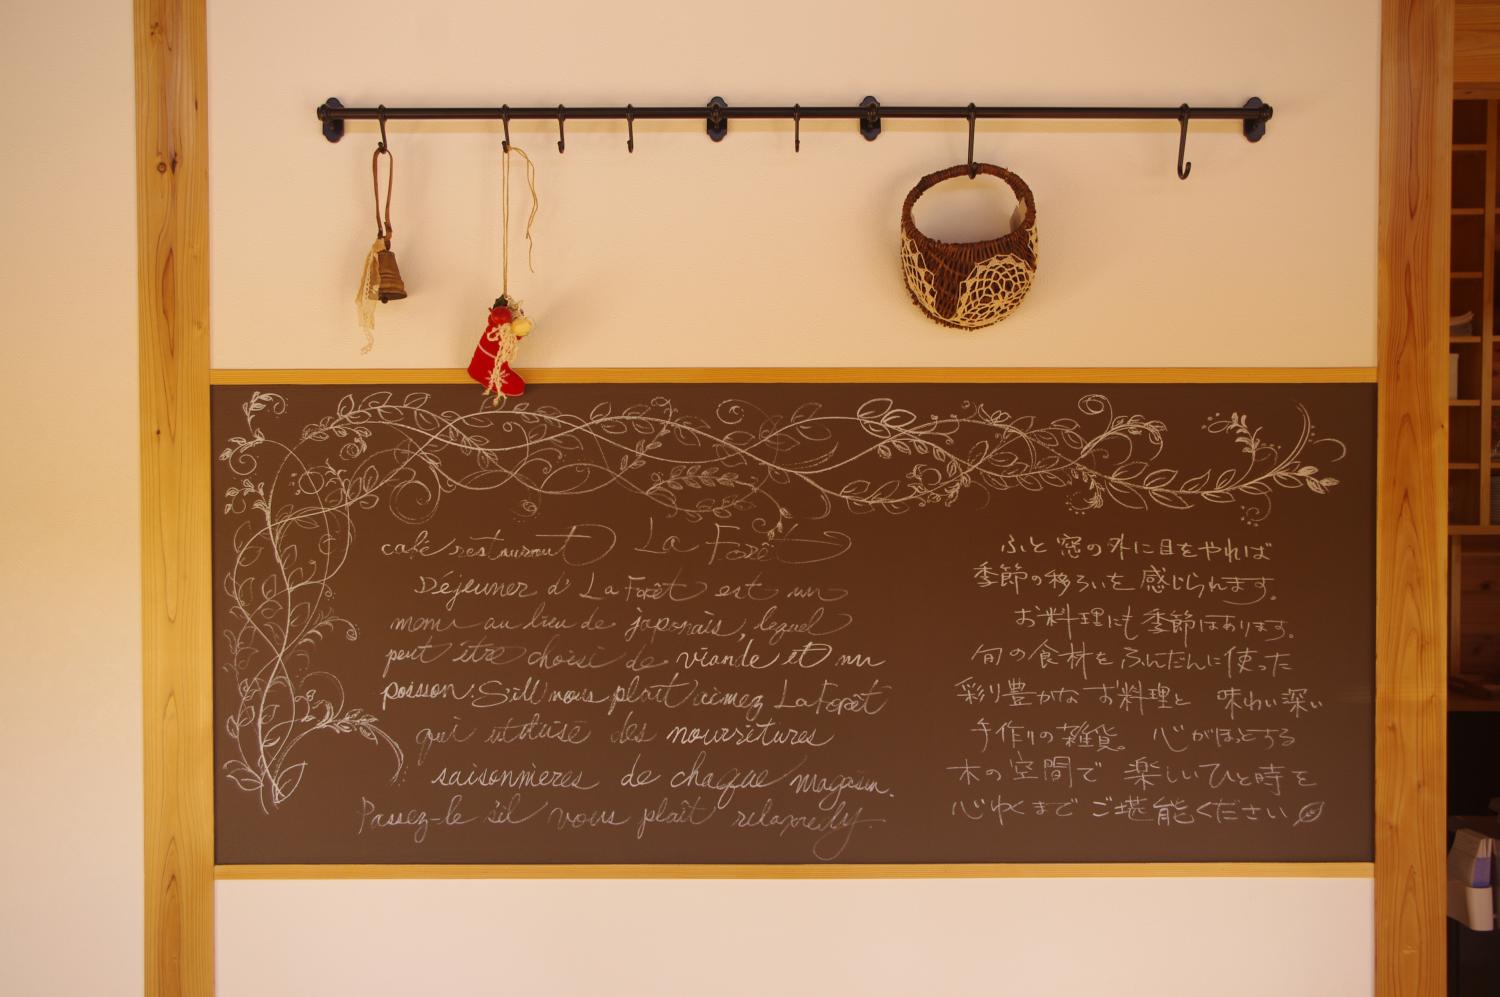 café restaurant La Forêt
Déjeuner d' La Forêt est un
menu au lieu de japonais, lequel
peut être choisi de viande et un
poisson. S'ill vous plaît aimez La Forêt
qui utilise des nourritures
saisonnieres de chaque magasin.
Passez-le s'il vous plaît relaxedly.
ふと窓の外に目をやれば
季節の移ろいを感じられます。
お料理にも季節はあります。
旬の食材をふんだんに使った
彩り豊かなお料理と 味わい深い
手作りの雑貨。 心がほっとする
木の空間で 楽しいひと時を
心ゆくまで ご堪能ください